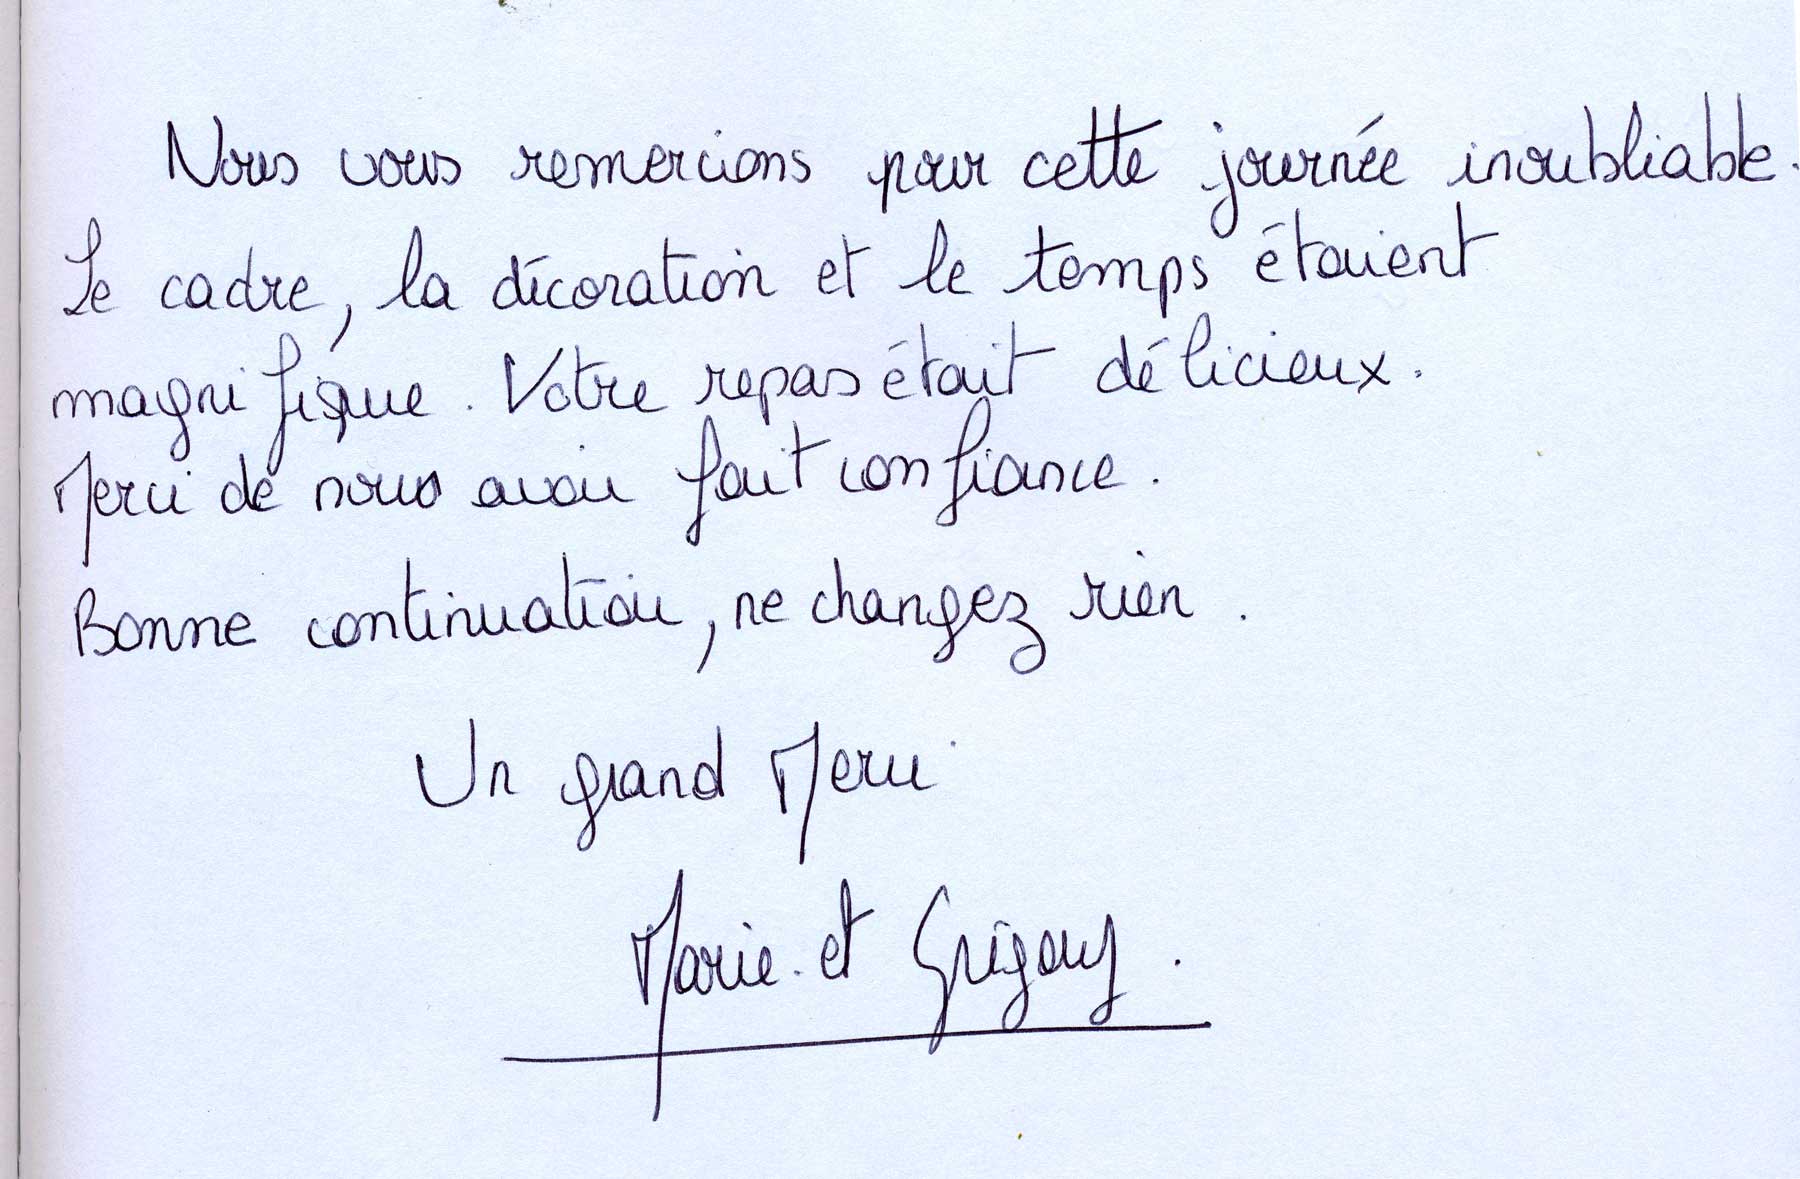 Nous vous remercions pour cette journée inoubliable.
Le cadre, la décoration et le temps étaient
magnifique. Votre repas était délicieux.
Merci de nous avoir fait confiance.
Bonne continuation, ne changez rien.
Un grand Merci
Marie et Grégory.